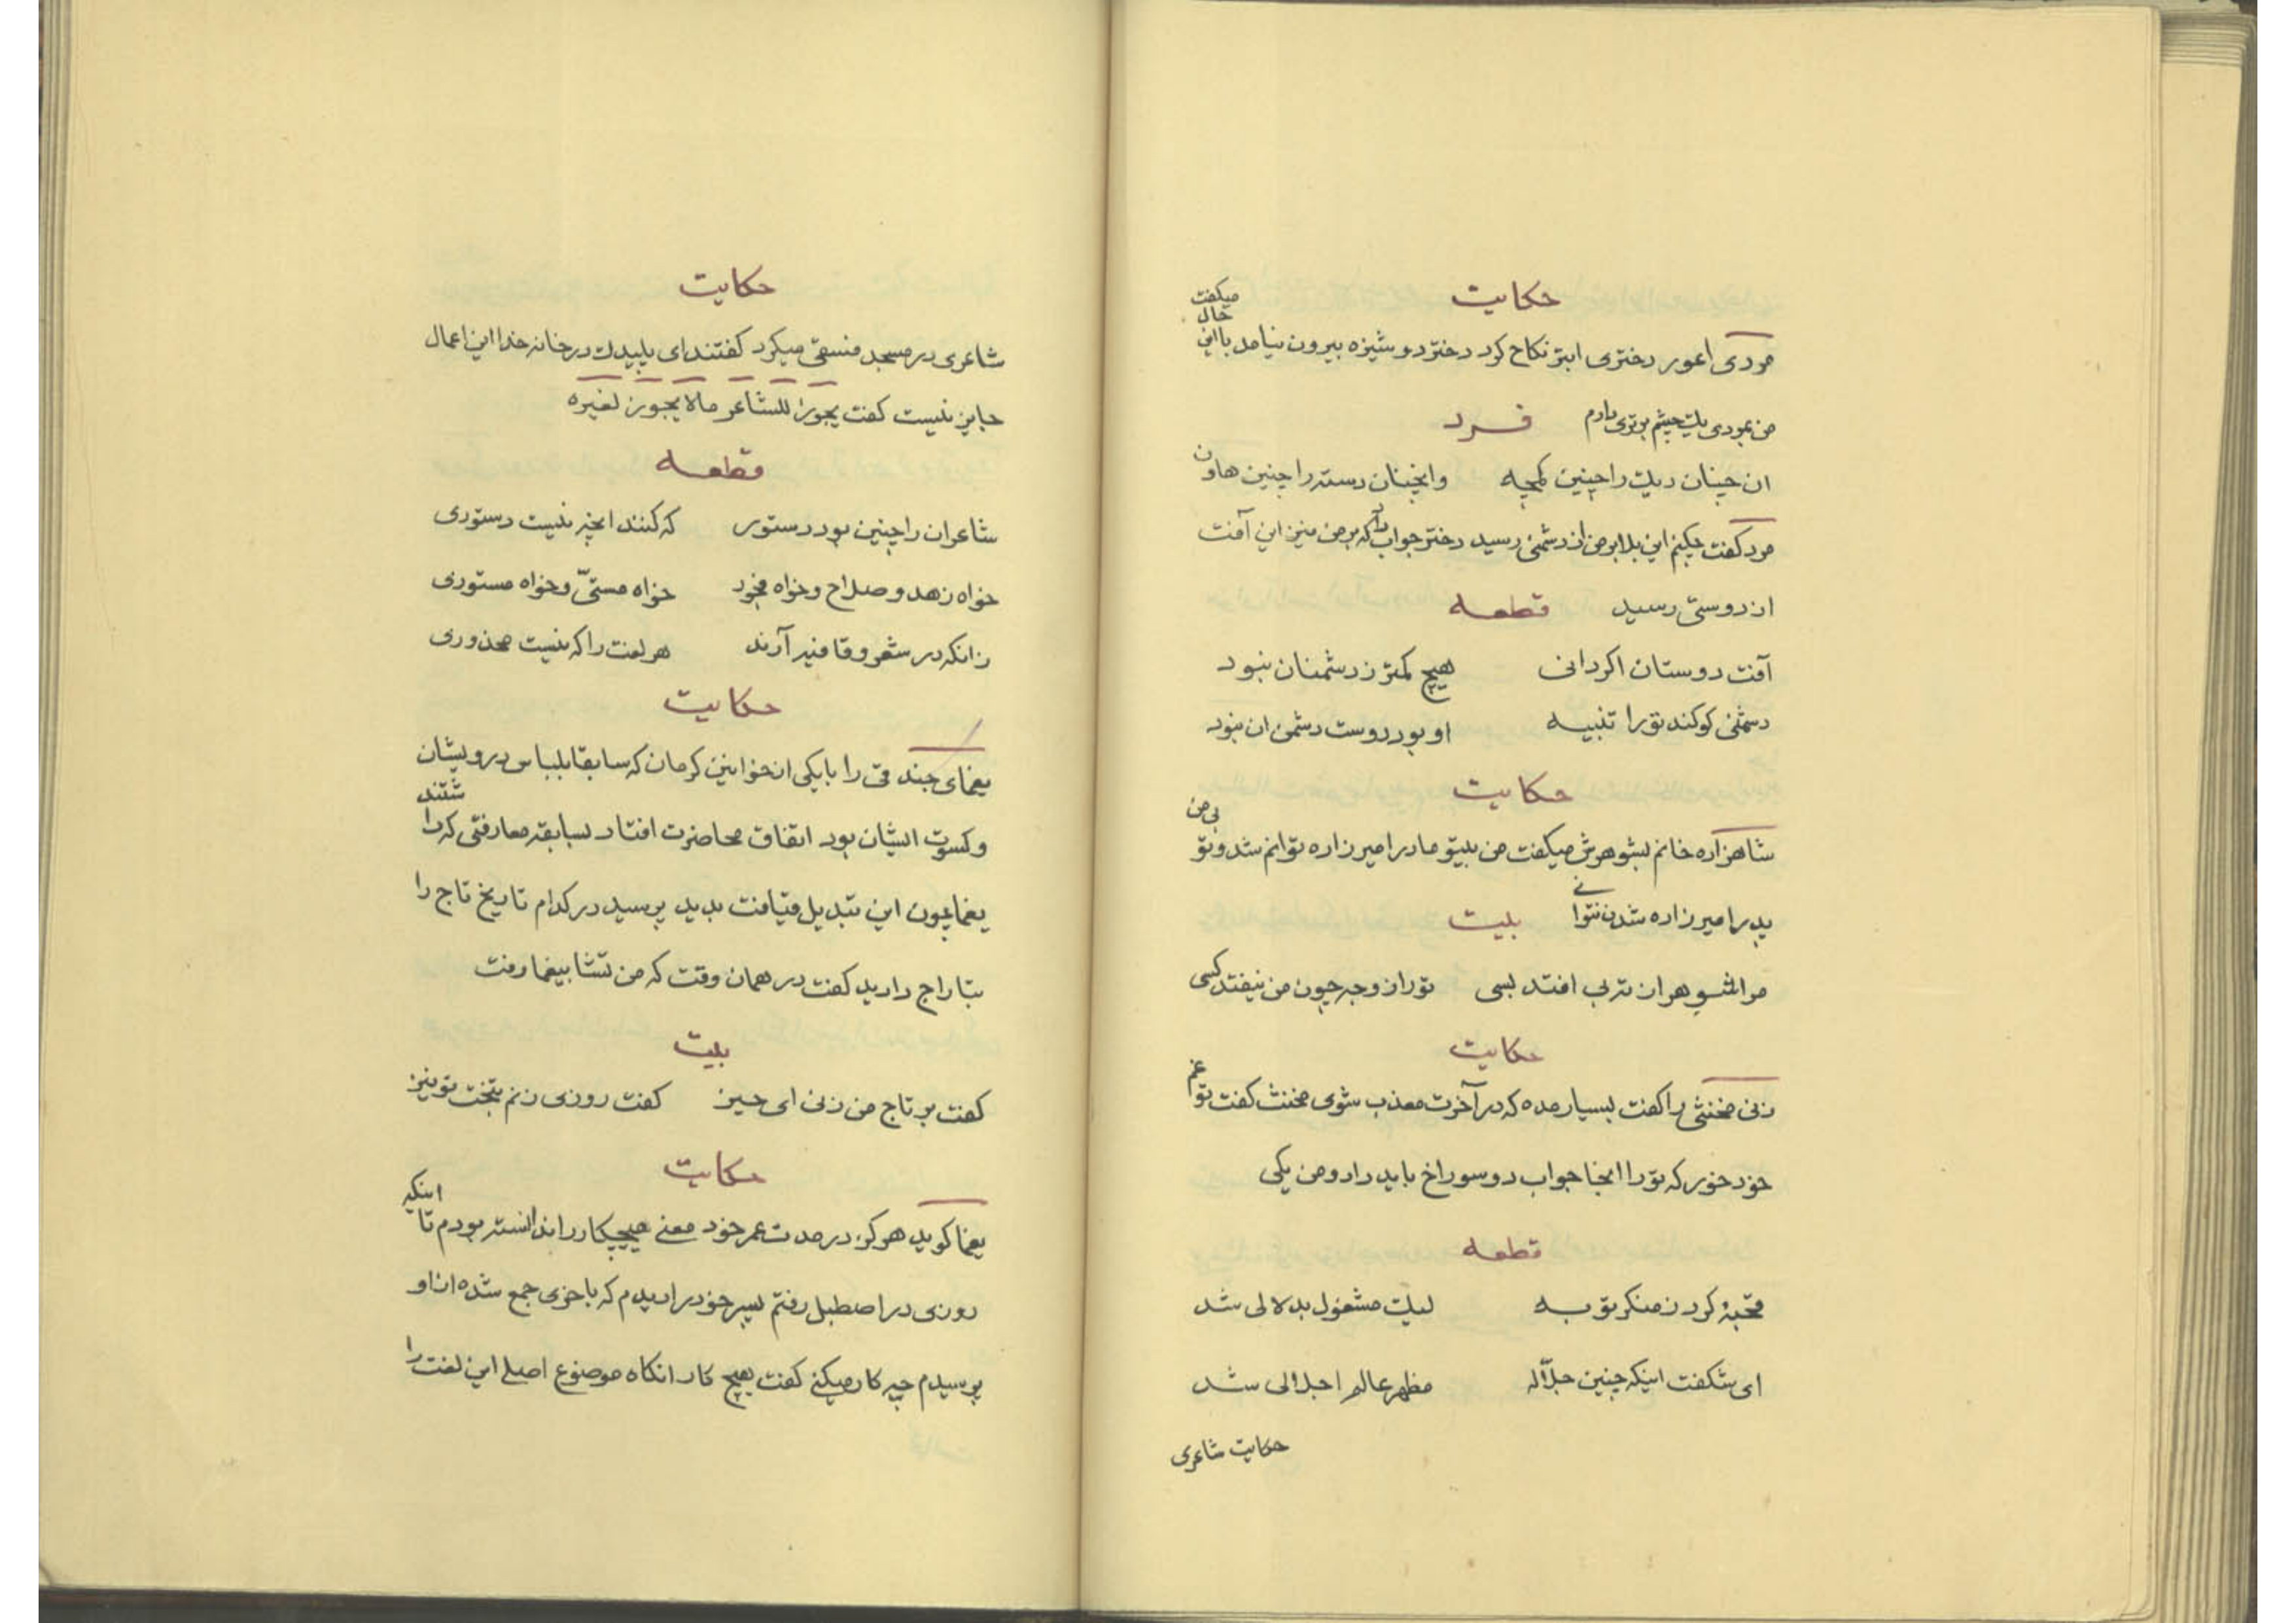 حکایت
مردی اعور دختری ابتر نکاح کرد دختر دوشیزه بیرون نیامد با این حال میکفت
من بمردی یک چشم برتری دارم فرد
ان چنان دیک را چنین کمچه وانچنان دسته را چنین هاون
مرد کفت چکنم این بلا بر من از دشمنی رسید دختر جواب داد که بر من نیز این آفت
از دوستی رسید قطعه
آفت دوستان اکر دانی هیچ کمتر ز دشمنان نبود
دشمنی کو کند تو را تنبیه او بود دوست دشمن ان نبود
حکایت
شاهزاده خانم بشوهرش میکفت من بیتو مادر امیرزاده توانم شد و تو بی من
پدر امیرزاده شدن نتوانی بیت
مرا شوهر از تو به افتد بسی تو را زوجه چون من نیفتد کسی
حکایت
زنی مخنثی را کفت بسیار مده که در آخرت معذب شوی مخنث کفت تو غم
خود خور که تو را انجا جواب دو سوراخ باید داد و من یکی
قطعه
قحبهٔ کرد ز منکر توبه لیک مشغول بدلالی شد
ای شکفت اینکه چنین جلاله مظهر عالم اجلالی شد
حکایت شاعری
حکایت
شاعری در مسجد فسقی میکرد کفتند ای پلیدک در خانه خدا این اعمال
جایز نیست کفت یجوز للشاعر مالا یجوز لغیره
قطعه
شاعران را چنین بود دستور که کنند انچه نیست دستوری
خواه زهد و صلاح و خواه فجور خواه مستی و خواه مستوری
زانکه در شعر و قافیه آرند هر لغت را که نیست محذوری
حکایت
یغمای جندقی را با یکی از خوانین کرمان که سابقا بلباس درویشان
و کسوت ایشان بود اتفاق محاضرت افتاد بسابقه معارفتی که داشتند
یغما چون این تبدیل قیافت بدید پرسید در کدام تاریخ تاج را
بتاراج دادید کفت در همان وقت که من تشا بیغما رفت
بیت
کفت بر تاج من زنی ای حیز کفت روزی زنم بتخت تو نیز
حکایت
یغما کوید هرکز در مدت عمر خود معنی هیچکار را ندانسته بودم تا اینکه
روزی در اصطبل رفتم پسر خود را دیدم که با خری جمع شده از او
پرسیدم چه کار میکنی کفت هیچ کار انکاه موضوع اصلی این لغت را